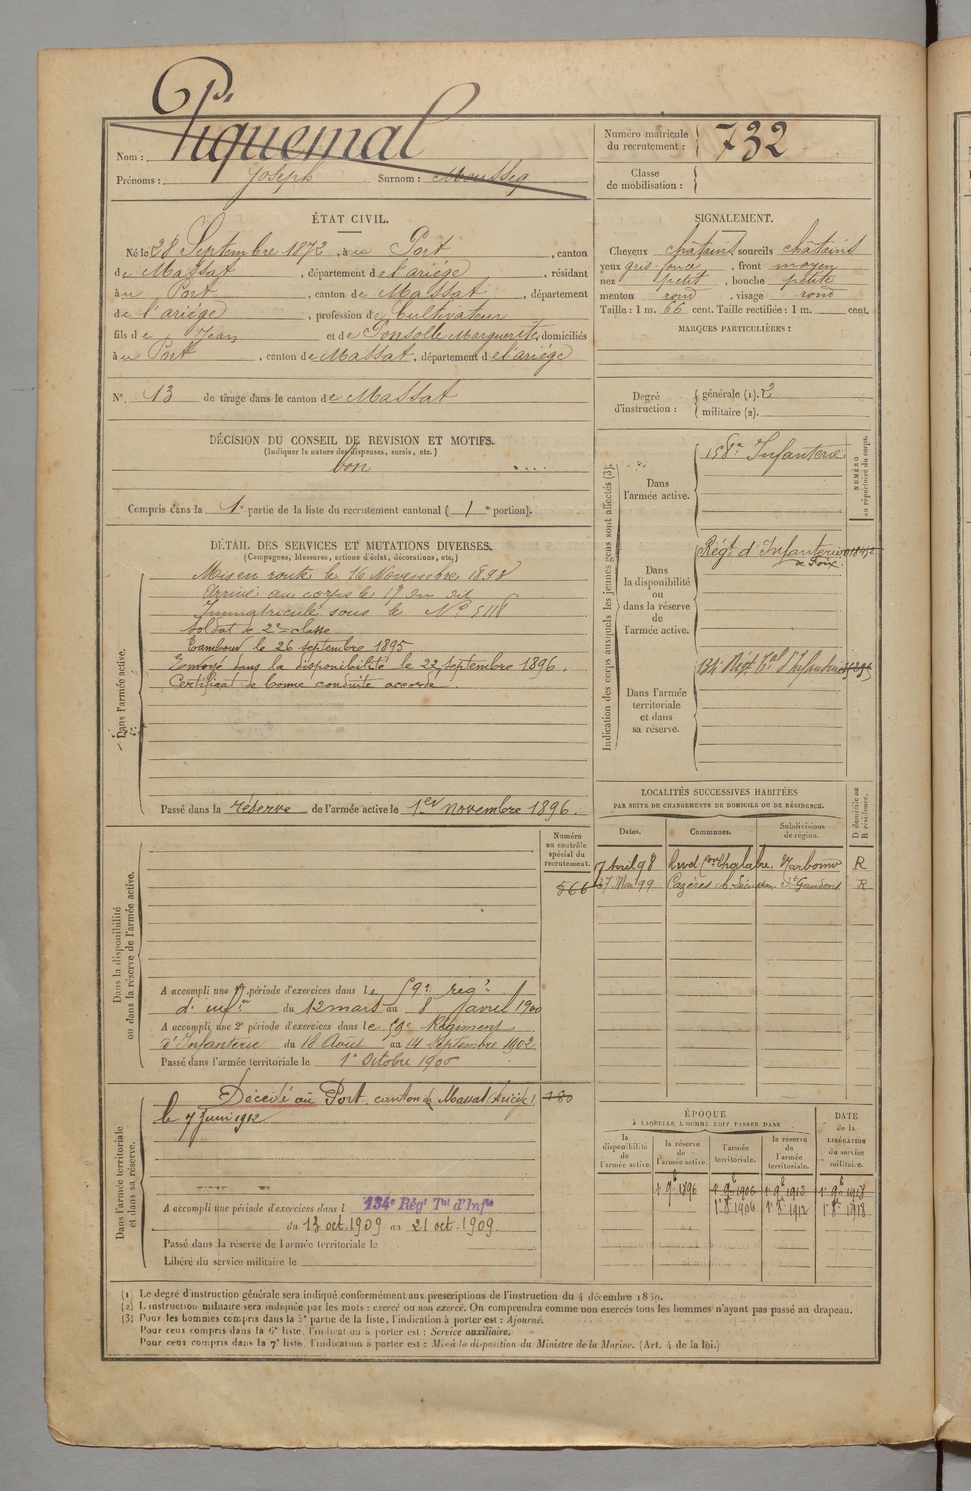 Nom : Piquemal
Prénoms : Joseph Surnom :
Numéro matricule
du recrutement : 732
Classe
de mobilisation :
ÉTAT CIVIL.
Né le 28 Septembre 1872, à u Port, canton
de Massat, département de l'ariége, résidant
à u Port, canton de Massat, département
de l'ariége, profession de Cultivateur
fils de Jean et de Ponsolle Marguerite, domiciliés
à u Port, canton de Massat, département de l'ariége
N° 13 de tirage dans le canton de Massat
SIGNALEMENT.
Cheveux châtains sourcils châtains
yeux gris foncé, front moyen
nez petit, bouche petite
menton rond, visage rond
Taille : 1 m. 66 cent. Taille rectifiée : 1 m. cent.
MARQUES PARTICULIÈRES :
Degré
d'instruction :
générale (1). 2
militaire (2).
DÉCISION DU CONSEIL DE REVISION ET MOTIFS.
(Indiquer la nature des dispenses, sursis, etc.)
bon
Compris dans la 1e partie de la liste du recrutement cantonal ( 1 e portion).
DÉTAIL DES SERVICES ET MUTATIONS DIVERSES.
(Campagnes, blessures, actions d'éclat, décorations, etc.)
Dans l'armée active.
Mis en route le 16 Novembre 1893
arrivé au corps le 17 du dit
Immatriculé sous le N° 5118
Soldat de 2e classe
Tambour le 26 septembre 1895
Envoyé dans la disponibilité le 22 septembre 1896.
Certificat de bonne conduite accordé.
Passé dans la réserve de l'armée active le 1er novembre 1896.
Indication des corps auxquels les jeunes gens sont affectés (3).
NUMÉRO
au répertoire du corps.
Dans
l'armée active.
158e Infanterie
Dans
la disponibilité
ou
dans la réserve
de
l'armée active.
Régt d'Infanterie
de Foix.
Dans l'armée
territoriale
et dans
sa réserve.
134e Régt Tal d'Infanterie
LOCALITÉS SUCCESSIVES HABITÉES
PAR SUITE DE CHANGEMENTS DE DOMICILE OU DE RÉSIDENCE.
Dates. Communes. Subdivisions
de région.
D domicile ou
R résidence.
17 Avril 98 Rivel Narbonne R
27 Mai 99 Cazères St Gaudens R
Dans la disponibilité
ou dans la réserve de l'armée active.
Numéro
au contrôle
spécial du
recrutement.
566
A accompli une 1re période d'exercices dans le 59e régt
d'infie du 12 mars au 8 avril 1900
A accompli une 2e période d'exercices dans le 59e Régiment
d'Infanterie du 18 Août au 14 Septembre 1902
Passé dans l'armée territoriale le 1er Octobre 1906
Dans l'armée territoriale
et dans sa réserve.
Décédé au Port. canton de Massat (Ariège)
le 7 Juin 1912
180
A accompli une période d'exercices dans l 134e Régt Tal d'Infie
du 13 oct. 1909 au 21 oct. 1909.
Passé dans la réserve de l'armée territoriale le
Libéré du service militaire le
ÉPOQUE
À LAQUELLE L'HOMME DOIT PASSER DANS
la
disponibilité
de
l'armée active.
la réserve
de
l'armée active.
l'armée
territoriale.
la réserve
de
l'armée
territoriale.
DATE
de la
LIBÉRATION
du service
militaire.
1er 9b 1896 1er 9b 1906 1er 9b 1912 1er 9b 1918
1er 8b 1906 1er 8b 1912 1er 8b 1918
(1) Le degré d'instruction générale sera indiqué conformément aux prescriptions de l'instruction du 4 décembre 1889.
(2) L'instruction militaire sera indiquée par les mots : exercé ou non exercé. On comprendra comme non exercés tous les hommes n'ayant pas passé au drapeau.
(3) Pour les hommes compris dans la 5e partie de la liste, l'indication à porter est : Ajourné.
Pour ceux compris dans la 6e liste, l'indication à porter est : Service auxiliaire.
Pour ceux compris dans la 7e liste, l'indication à porter est : Mis à la disposition du Ministre de la Marine. (Art. 4 de la loi.)